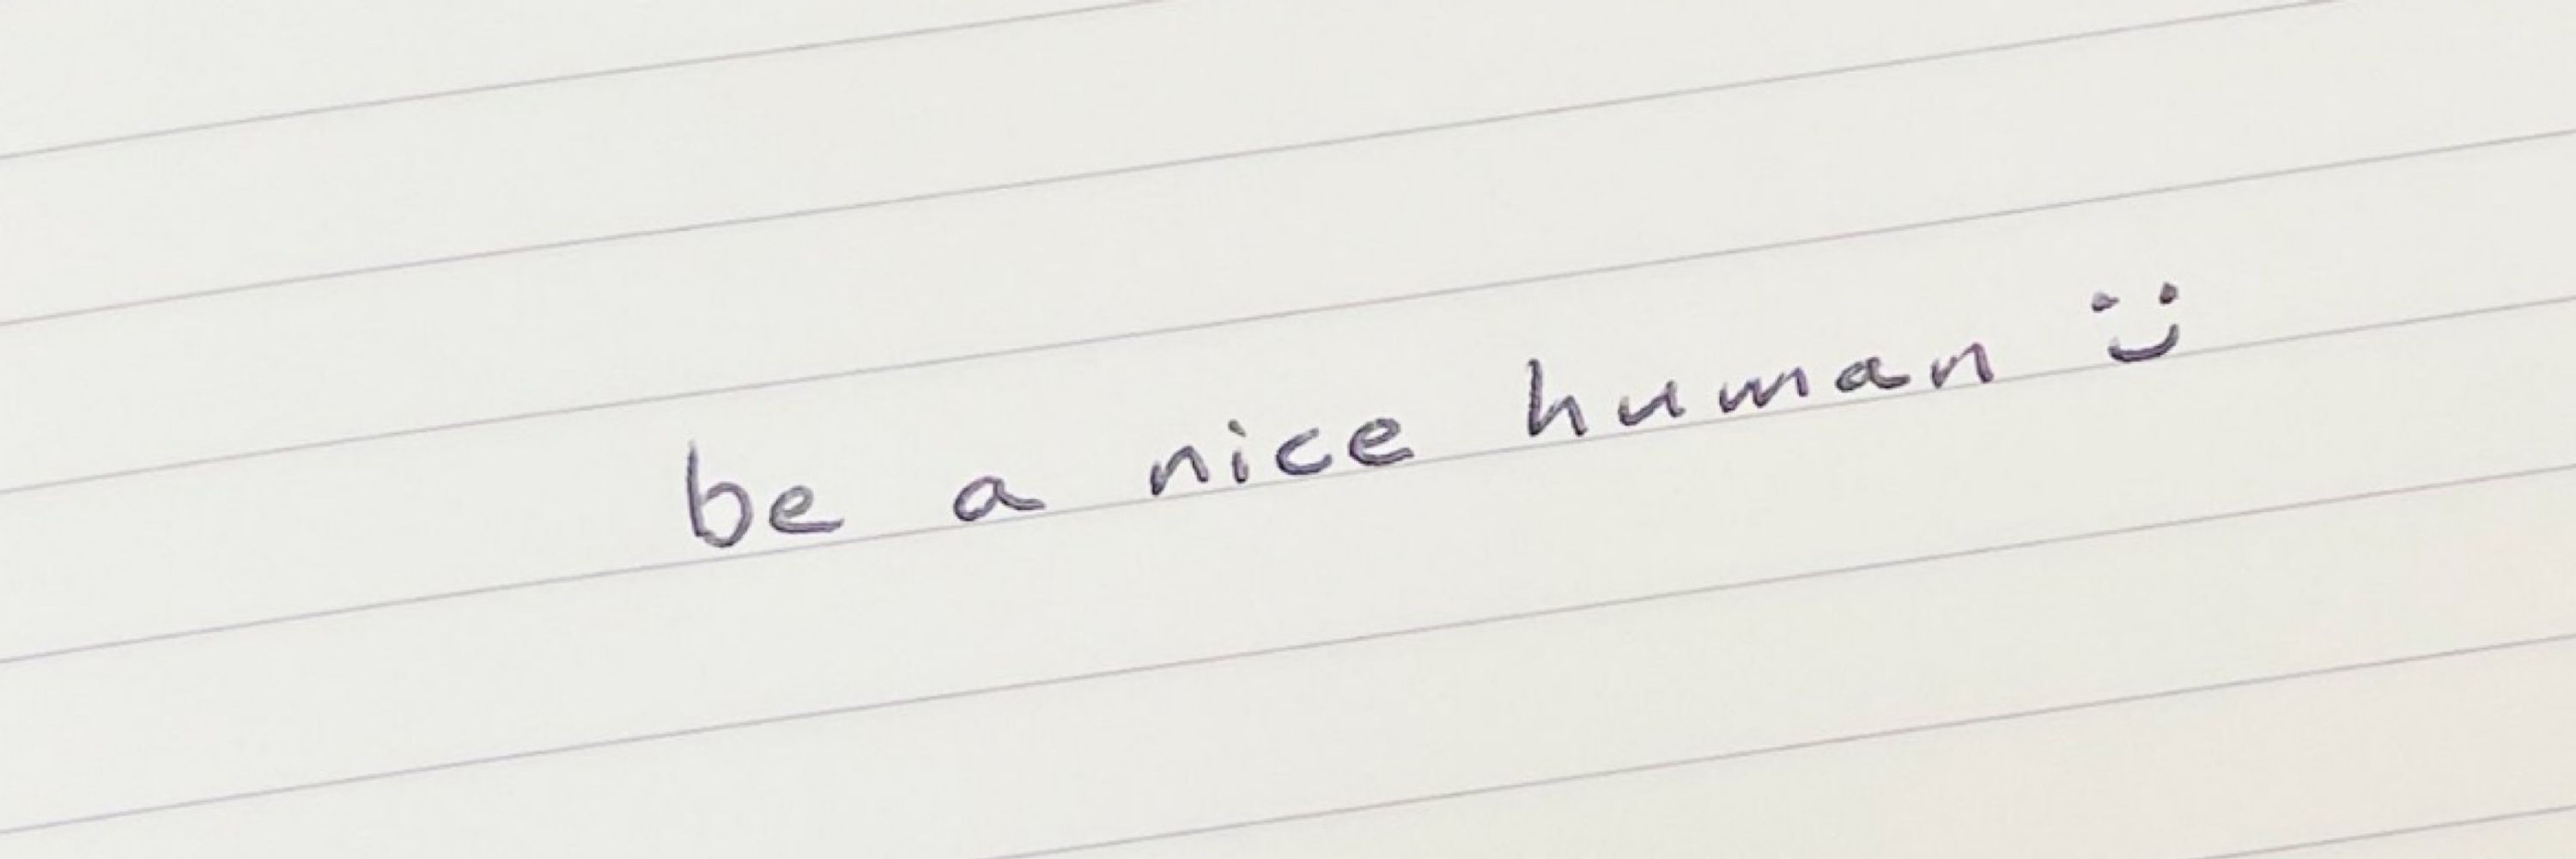 be a nice human :)